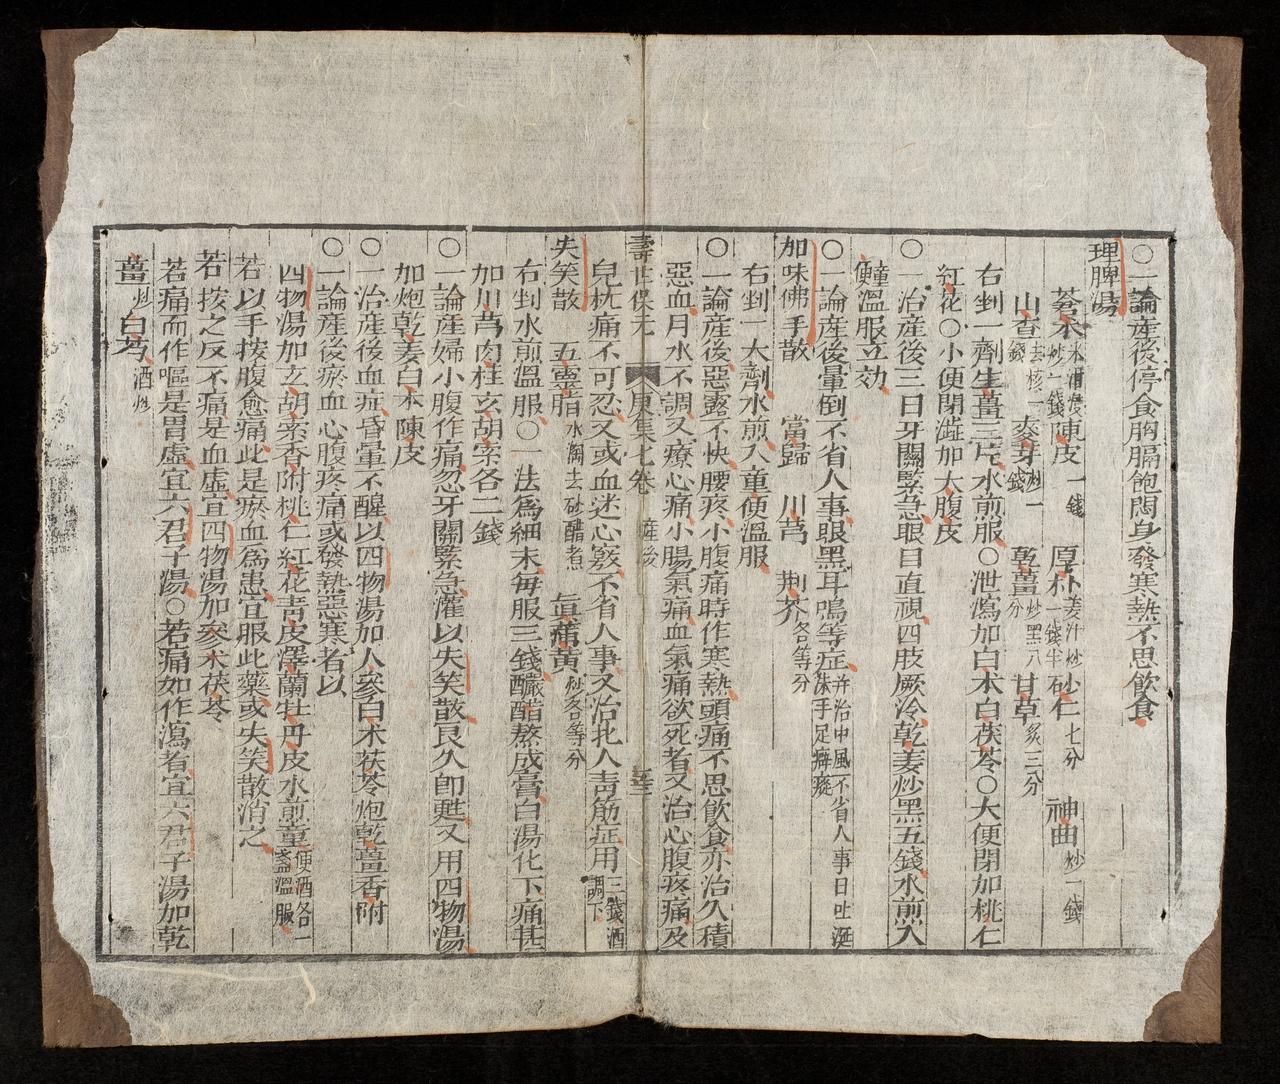 ○一論產後停食胸膈飽悶身發寒熱不思飲食
理脾湯
蒼朮米泔浸炒一錢陳皮一錢 厚朴姜汁炒一錢半砂仁七分 神曲炒一錢
山查去核一錢 麥芽炒一錢 乾薑炒黑八分 甘草炙三分
右剉一劑生薑三片水煎服○泄瀉加白朮白茯苓○大便閉加桃仁
紅花○小便閉澁加大腹皮
○一治產後三日牙關緊急眼目直視四肢厥冷乾姜炒黑五錢水煎入
童便溫服立効
○一論產後暈倒不省人事眼黑耳鳴等症并治中風不省人事口吐涎沫手足瘈瘲
加味佛手散 當歸 川芎 荆芥各等分
右剉一大劑水煎入童便溫服
○一論產後惡露不快腰疼小腹痛時作寒熱頭痛不思飲食亦治久積
惡血月水不調又療心痛小腸氣痛血氣痛欲死者又治心腹疼痛及
壽世保元 庚集七卷 產後 三三
兒枕痛不可忍又或血迷心竅不省人事又治北人青筋症用三錢酒調下
失笑散 五靈脂水淘去砂醋煮 眞蒲黄炒各等分
右剉水煎溫服○一法爲細末每服三錢釅醋熬成膏白湯化下痛甚
加川芎肉桂玄胡索各二錢
○一論產婦小腹作痛忽牙關緊急灌以失笑散良久即甦又用四物湯
加炮乾姜白朮陳皮
○一治產後血症昏暈不醒以四物湯加人參白朮茯苓炮乾薑香附
○一論產後瘀血心腹疼痛或發熱惡寒者以
四物湯加玄胡索香附桃仁紅花青皮澤蘭牡丹皮水煎童便酒各一盞溫服
若以手按腹愈痛此是瘀血爲患宜服此藥或失笑散消之
若按之反不痛是血虛宜四物湯加參朮茯苓
若痛而作嘔是胃虛宜六君子湯○若痛如作瀉者宜六君子湯加乾
薑炒白芍酒炒